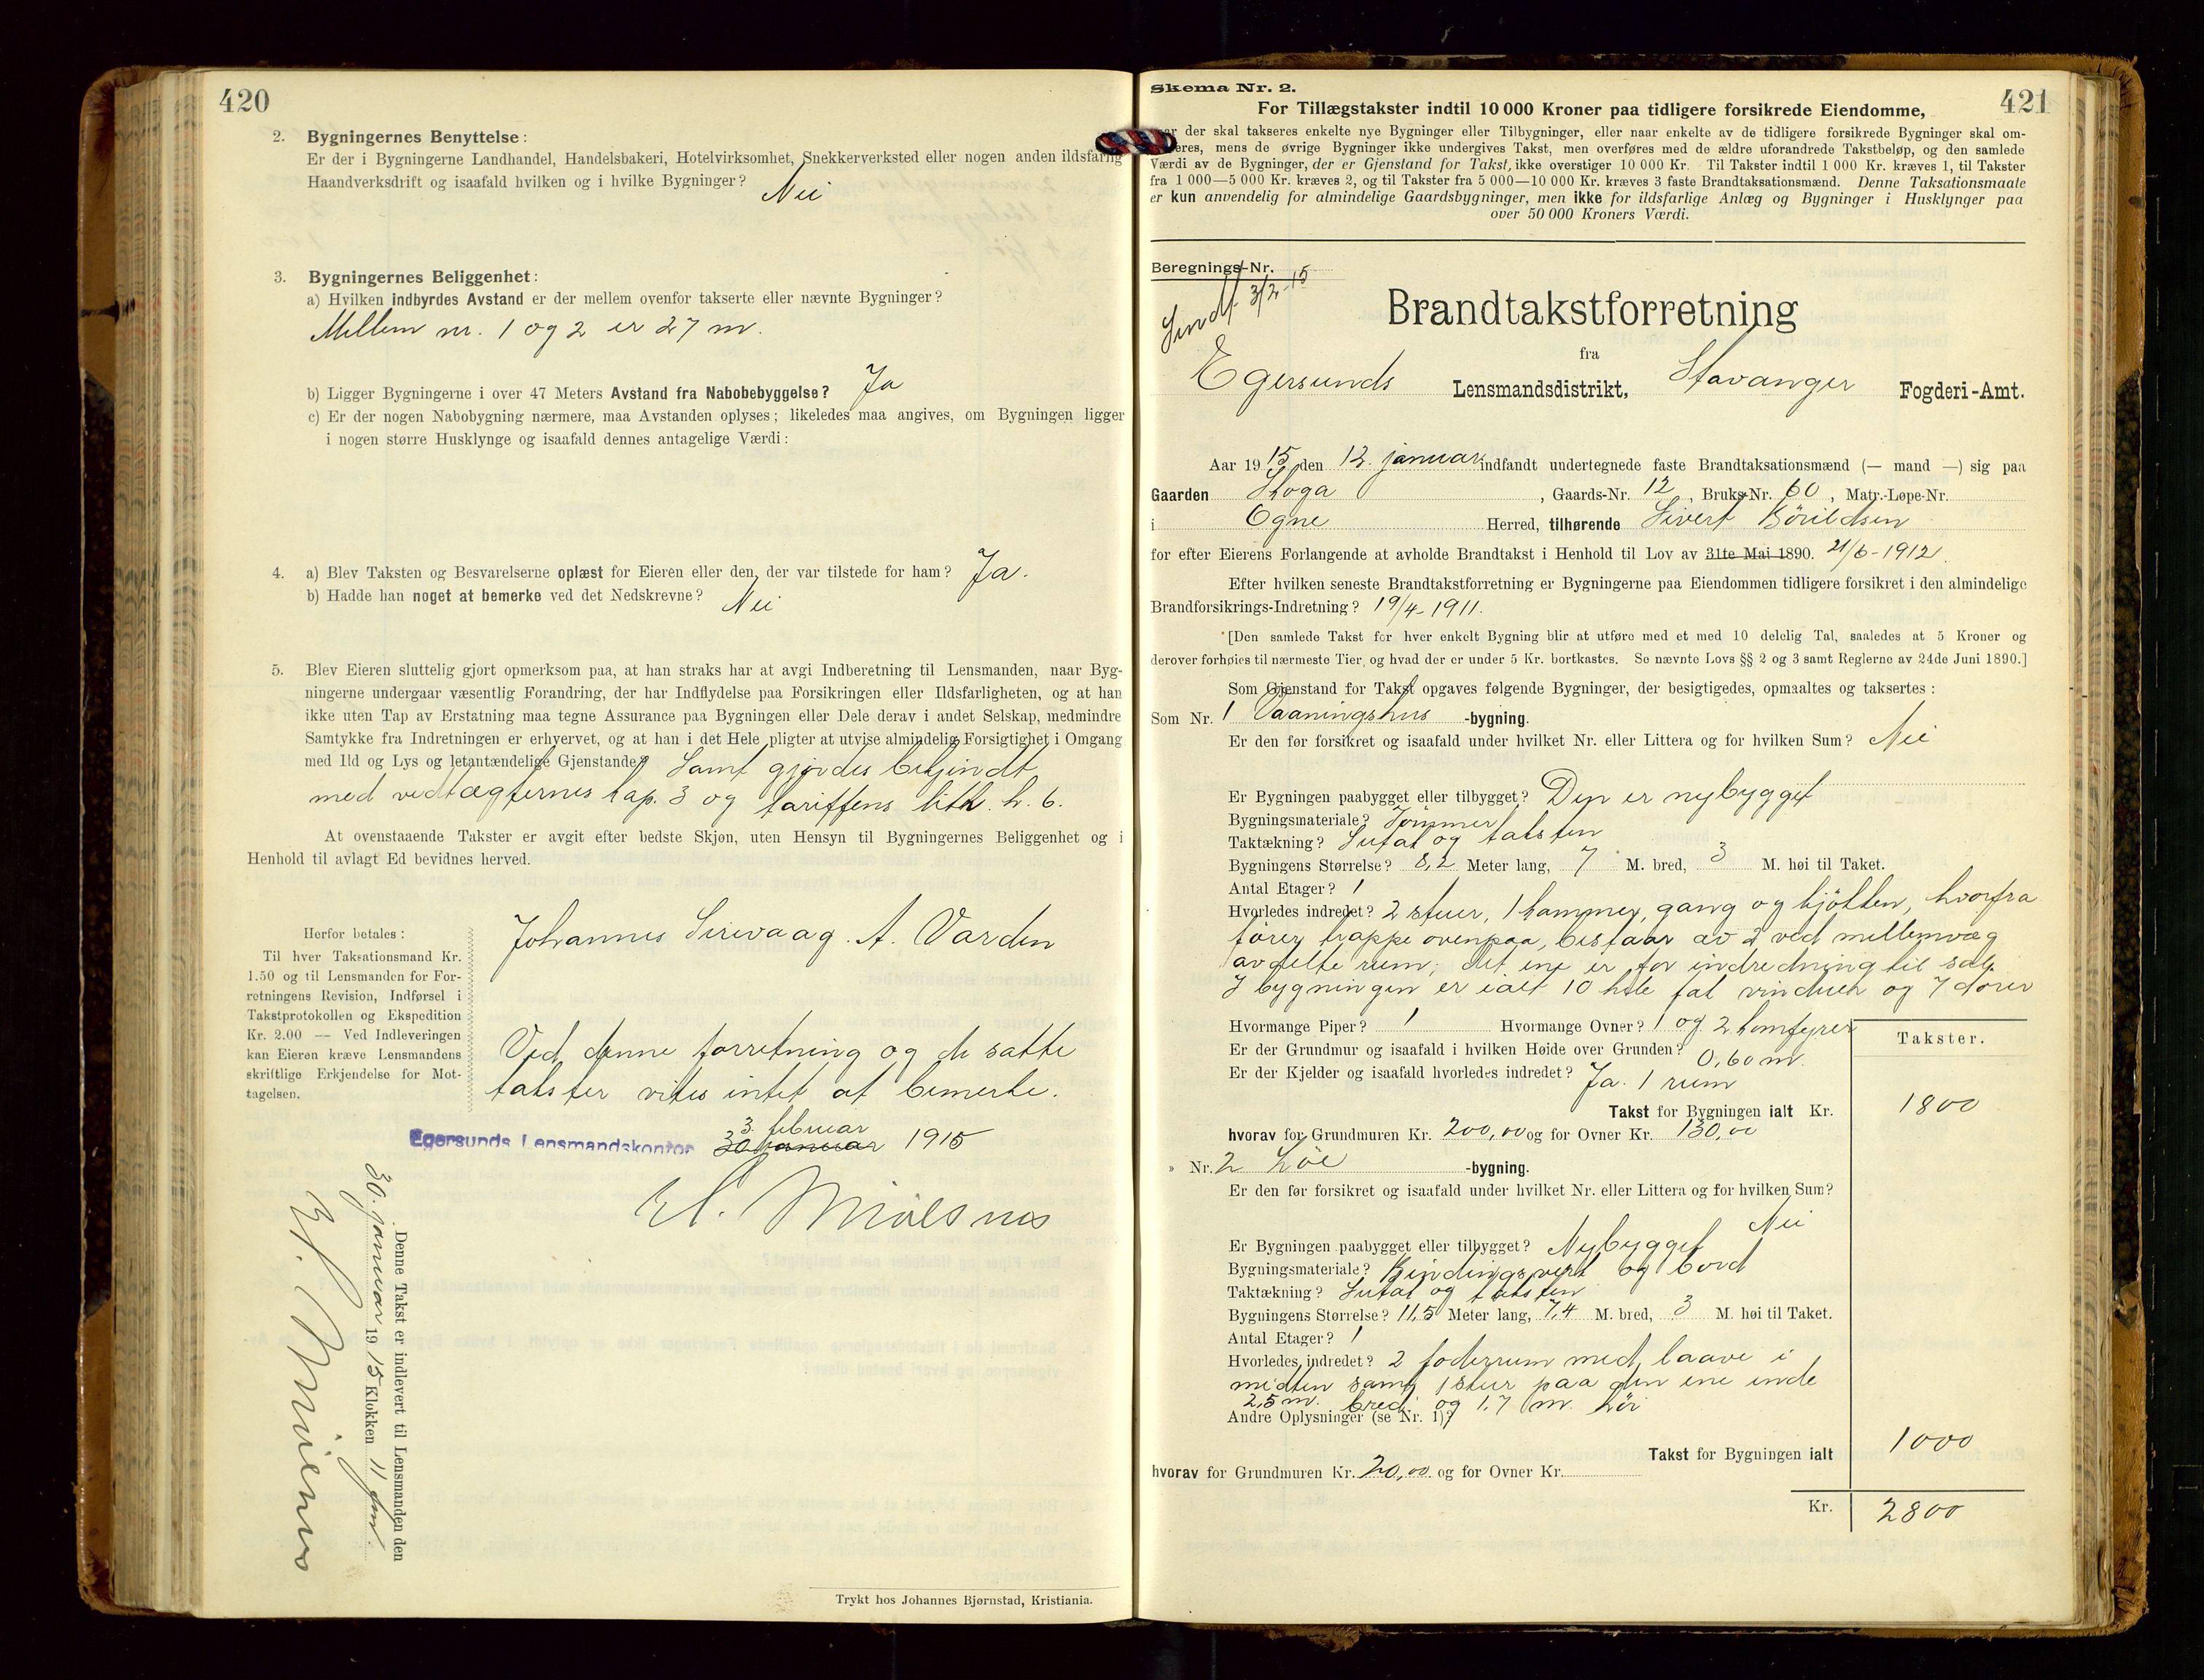 420
2. Bygningernes Benyttelse:
Er der i Bygningerne Landhandel, Handelsbakeri, Hotelvirksomhet, Snekkerverksted eller nogen anden ildsfarlig
Haandverksdrift og isaafald hvilken og i hvilke Bygninger? Nei
3. Bygningernes Beliggenhet:
a) Hvilken indbyrdes Avstand er der mellem ovenfor takserte eller nævnte Bygninger?
Mellem nr. 1 og 2 er 27 m.
b) Ligger Bygningerne i over 47 Meters Avstand fra Nabobebyggelse? Ja
c) Er der nogen Nabobygning nærmere, maa Avstanden oplyses; likeledes maa angives, om Bygningen ligger
i nogen større Husklynge og isaafald dennes antagelige Værdi:
4. a) Blev Taksten og Besvarelserne oplæst for Eieren eller den, der var tilstede for ham? Ja.
b) Hadde han noget at bemerke ved det Nedskrevne? Nei
5. Blev Eieren sluttelig gjort opmerksom paa, at han straks har at avgi Indberetning til Lensmanden, naar Byg-
ningerne undergaar væsentlig Forandring, der har Indflydelse paa Forsikringen eller Ildsfarligheten, og at han
ikke uten Tap av Erstatning maa tegne Assurance paa Bygningen eller Dele derav i andet Selskap, medmindre
Samtykke fra Indretningen er erhvervet, og at han i det Hele pligter at utvise almindelig Forsigtighet i Omgang
med Ild og Lys og letantændelige Gjenstande? Samt gjordes bekjendt
med vedtægternes kap. 3 og tariffens litt. h. 6.
At ovenstaaende Takster er avgit efter bedste Skjøn, uten Hensyn til Bygningernes Beliggenhet og i
Henhold til avlagt Ed bevidnes herved.
Herfor betales:
Til hver Taksationsmand Kr.
1.50 og til Lensmanden for For-
retningens Revision, Indførsel i
Takstprotokollen og Ekspedition
Kr. 2.00 — Ved Indleveringen
kan Eieren kræve Lensmandens
skriftlige Erkjendelse for Mot-
tagelsen.
Johannes Sirevaag. A. Varden
Ved denne forretning og de satte
takster vites intet at bemerke.
3. februar
Egersunds Lensmandskontor 30 januar 1915
Denne Takst er indlevert til Lensmanden den
30. januar 19 15 Klokken 11 fm.
Trykt hos Johannes Bjørnstad, Kristiania.
Skema Nr. 2.
421
For Tillægstakster indtil 10 000 Kroner paa tidligere forsikrede Eiendomme,
der skal takseres enkelte nye Bygninger eller Tilbygninger, eller naar enkelte av de tidligere forsikrede Bygninger skal om-
mens de øvrige Bygninger ikke undergives Takst, men overføres med de ældre uforandrede Takstbeløp, og den samlede
Værdi av de Bygninger, der er Gjenstand for Takst, ikke overstiger 10 000 Kr. Til Takster indtil 1 000 Kr. kræves 1, til Takster
fra 1 000—5 000 Kr. kræves 2, og til Takster fra 5 000—10 000 Kr. kræves 3 faste Brandtaksationsmænd. Denne Taksationsmaate
er kun anvendelig for almindelige Gaardsbygninger, men ikke for ildsfarlige Anlæg og Bygninger i Husklynger paa
over 50 000 Kroners Værdi.
Beregnings-Nr.
Sendt 3/2-15
Brandtakstforretning
fra
Egersunds Lensmandsdistrikt, Stavanger Fogderi-Amt.
Aar 1915 den 12. januar indfandt undertegnede faste Brandtaksationsmænd (— mand —) sig paa
Gaarden Skoga, Gaards-Nr. 12, Bruks-Nr. 60, Matr.-Løpe-Nr.
i Ogne Herred, tilhørende Sivert Börildsen
for efter Eierens Forlangende at avholde Brandtakst i Henhold til Lov av 31te Mai 1890. 21/6-1912.
Efter hvilken seneste Brandtakstforretning er Bygningerne paa Eiendommen tidligere forsikret i den almindelige
Brandforsikrings-Indretning? 19/4-1911.
[Den samlede Takst for hver enkelt Bygning blir at utføre med et med 10 delelig Tal, saaledes at 5 Kroner og
derover forhøies til nærmeste Tier, og hvad der er under 5 Kr. bortkastes. Se nævnte Lovs §§ 2 og 3 samt Reglerne av 24de Juni 1890.]
Som Gjenstand for Takst opgaves følgende Bygninger, der besigtigedes, opmaaltes og taksertes:
Som Nr. 1 Vaaningshus -bygning.
Er den før forsikret og isaafald under hvilket Nr. eller Littera og for hvilken Sum? Nei
Er Bygningen paabygget eller tilbygget? Den er nybygget
Bygningsmateriale? Tömmer
Taktækning? Sutak og taksten
Bygningens Størrelse? 8,2 Meter lang, 7 M. bred, 3 M. høi til Taket.
Antal Etager? 1
Hvorledes indredet? 2 stuer, 1 kammer, gang og kjökken, hvorfra
fører trappe ovenpaa, bestaar av 2 ved mellemvæg
avdelte rum; det ene er for indredning til sal.
I bygningen er ialt 10 hele fal vinduer og 7 dører
Hvormange Piper? 1 Hvormange Ovner? 1 og 2 komfyrer
Er der Grundmur og isaafald i hvilken Høide over Grunden? 0,60 m.
Er der Kjelder og isaafald hvorledes indredet? Ja. 1 rum
Takster.
Takst for Bygningen ialt Kr. 1800
hvorav for Grundmuren Kr. 200,00 og for Ovner Kr. 130,00
» Nr. 2 Löe -bygning.
Er den før forsikret og isaafald under hvilket Nr. eller Littera og for hvilken Sum?
Nei
Er Bygningen paabygget eller tilbygget? Nybygget
Bygningsmateriale? Bindingsverk og bord
Taktækning? Sutak og taksten
Bygningens Størrelse? 11,5 Meter lang, 7,4 M. bred, 3 M. høi til Taket.
Antal Etager? 1
Hvorledes indredet? 2 foderrum med laave i
midten samt 1 skur paa den ene ende
2,5 m. bred og 1,7 m. höi
Andre Oplysninger (se Nr. 1)?
Takst for Bygningen ialt 1000
hvorav for Grundmuren Kr. 20,00 og for Ovner Kr.
Kr. 2800